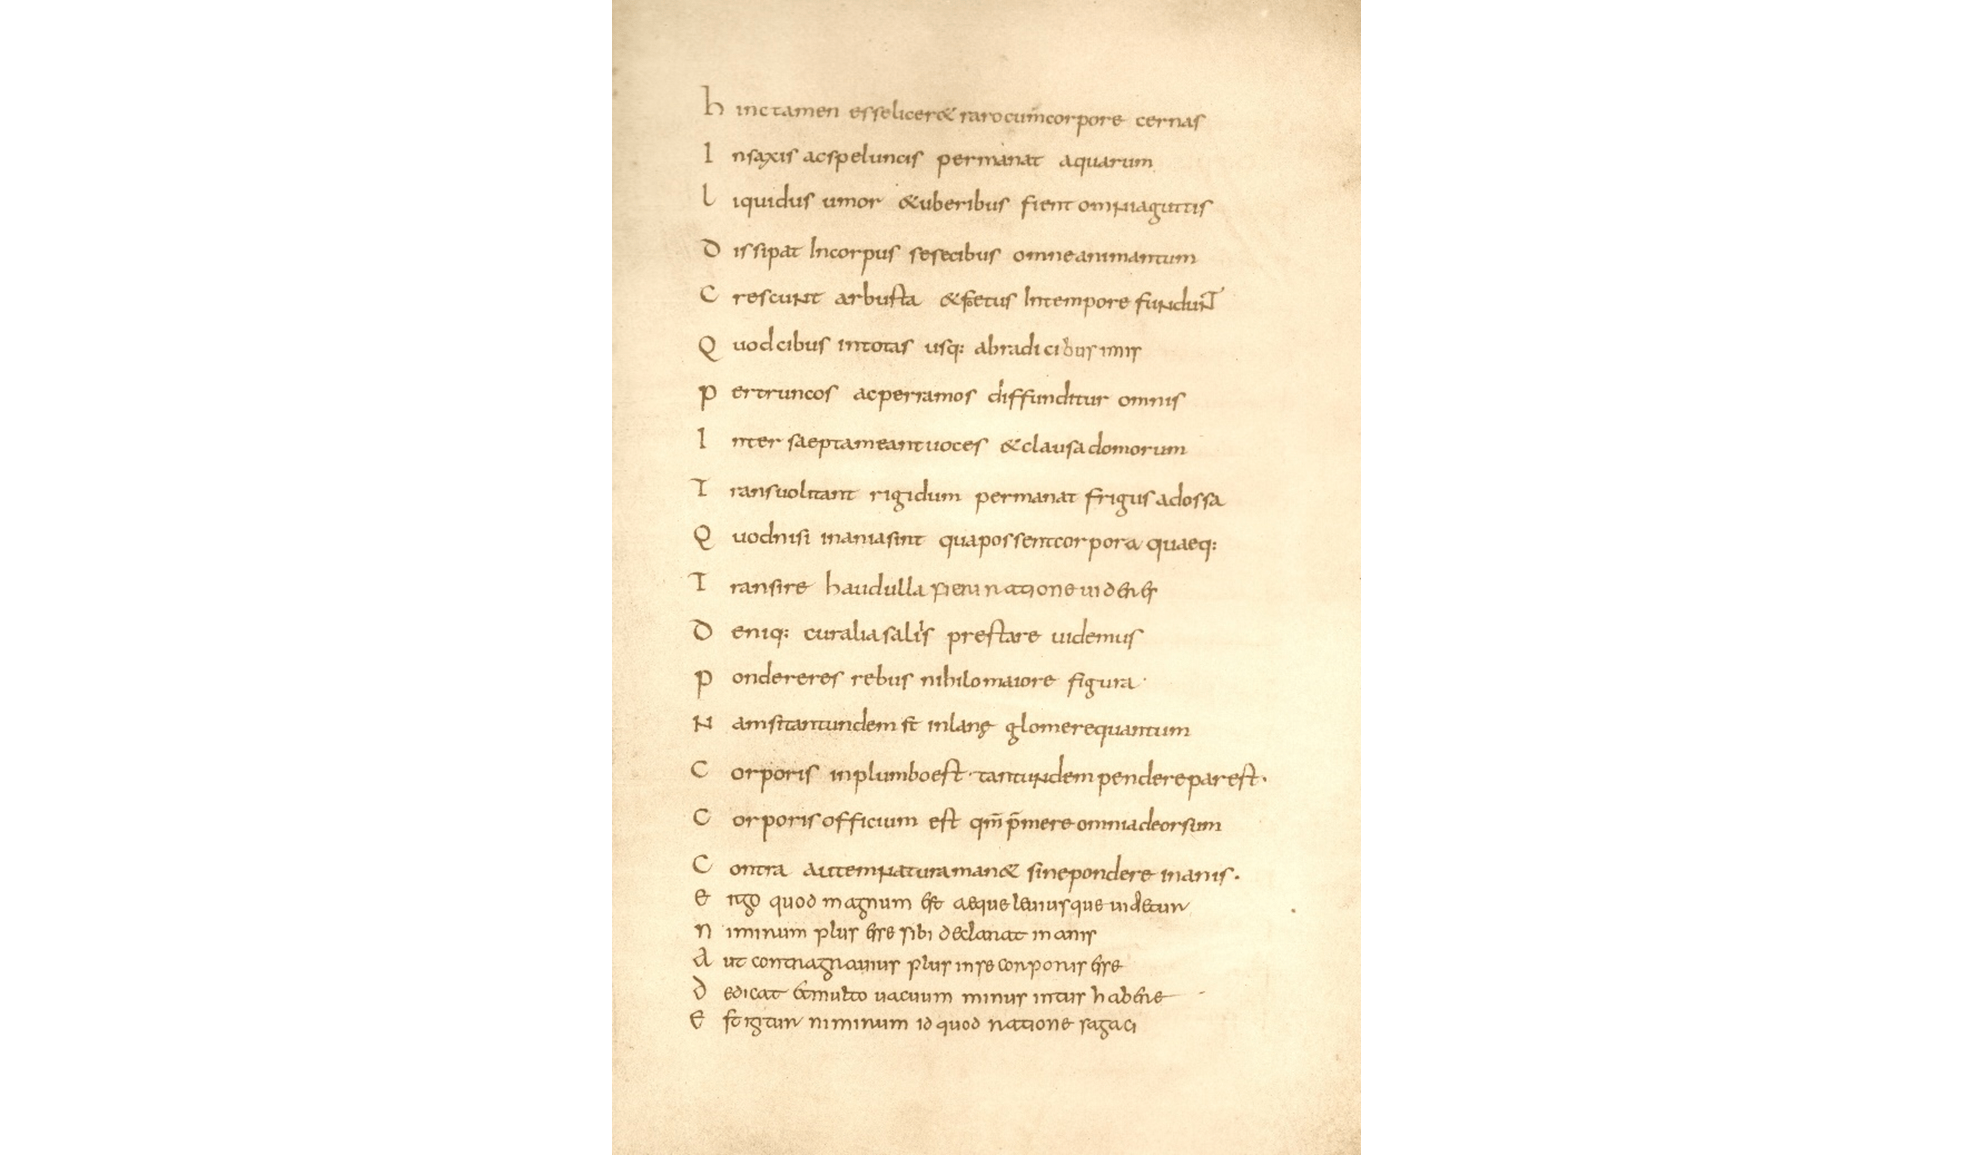 hinctamen esselicer& rarocum̄corpore cernas
Insaxis acspeluncis permanat aquarum
liquidus umor &uberibus fient omniaguttis
Dissipat Incorpus sesecibus omneanimantum
Crescunt arbusta &foetus Intempore fundunt
Quodcibus intotas usq: abradicibus imis
Pertruncos acperramos diffunditur omnis
Inter saeptameantuoces &clausadomorum
Transuolitant rigidum permanat frigusadossa
Quodnisi inaniasint quapossentcorpora quaeq:
Transire haudulla fieri ratione uideres
Deniq: cur aliasalis prestare uidemus
Pondereres rebus nihilomaiore figura·
Namsitantundem st inlanę glomerequantum
Corporis inplumboest· tantundempendereparest·
Corporisofficium est qm̄ p̄mere omniadeorsum
Contra autemnaturaman& sinepondere inanis·
ergo quod magnum est aequeleuiusque uidetur
nimirum plus esse sibi declarat inanis
Aut contragrauius plus inse corporis esse
dedicat &multo uacuum minus intus habere
Est igitur nimirum id quod ratione sagaci